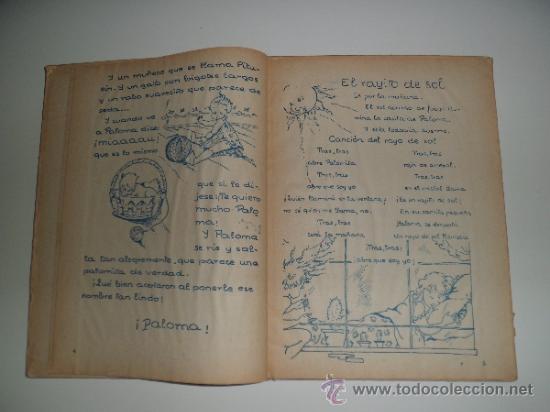 Y un muñeco que se llama Pitu-
sín. Y un gato con bigotes largos
y un rabo suavecito que parece de
seda...
Y cuando ve
a Paloma dice
¡miaaaau!
que es lo mismo
que si le di-
jese: ¡Te quiero
mucho Palo-
ma!
Y Paloma
se ríe y sal-
ta tan alegremente, que parece una
palomita de verdad.
¡Qué bien acertaron al ponerle ese
nombre tan lindo!
¡Paloma!
El rayito de sol
Es por la mañana.
El sol acaba de
la casita de Paloma.
Y ella todavía duerme.
Canción del rayo de sol
Tras, tras
abre Palomita
Tras, tras
abre me soy yo
¿Quién llamará en la ventana?
no sé quién me llama, no.
Tras, tras
será la mañana
Tras, tras
¡abre que soy yo!
Tras, tras
rayo de
Tras, tras
en el cristal llama
¡Es un rayito de sol!
En su camita pequeña
Paloma se despertó
Un rayo de sol
todocoleccion.net
www.todocoleccion.net